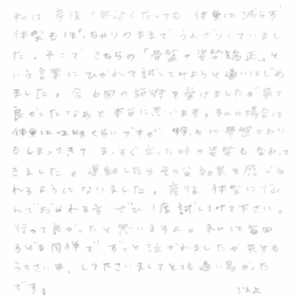 私は 産後1年近くたっても 体重は減らず
体型もぽっちゃりのままで うんざりしていまし
た。そこで こちらの「骨盤+姿勢矯正」と
いう言葉に ひかれて試してみようと通いはじめ
ました。今 6回の施術を受けましたが 来て
良かったなあと 本当に思います。私の場合は
体重は-2kgくらいですが 骨盤のまわり
もしまってきて まっすぐ立った時の姿勢も変わって
きました。運動したらその分効果を感じら
れるようになりました。産後 体型に悩
んでおられる方 ぜひ1度試してみて下さい。
行って良かったと思いますよ。私は毎回
子どもを同伴で ずっと泣かれましたが 先生も
して下さいましてとても通い易かった
です。